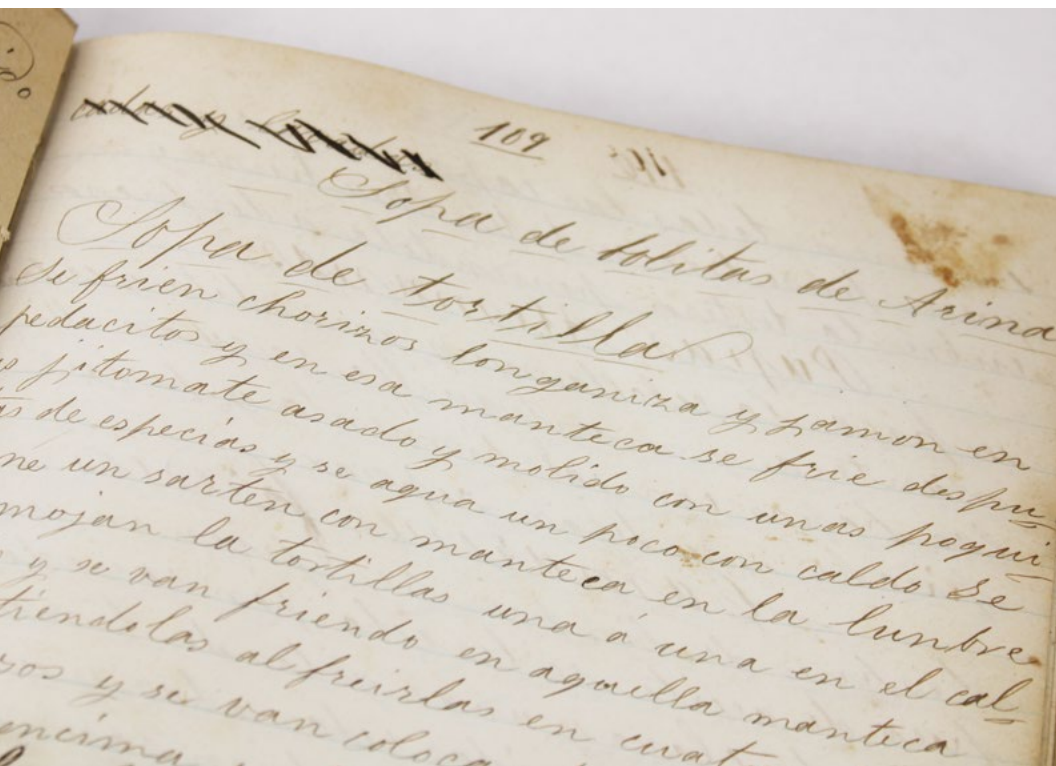 109
Sopa de bolitas de Arina
Sopa de tortilla
Se frien chorizos longaniza y jamon en
pedacitos y en esa manteca se frie despu-
jitomate asado y molido con unas poqui-
de especias y se agua un poco con caldo se
ne un sarten con manteca en la lunbre
mojan la tortillas una á una en el cal-
y se van friendo en aquella manteca
tiendolas al freirlas en cuat
sos y se van coloca
encima